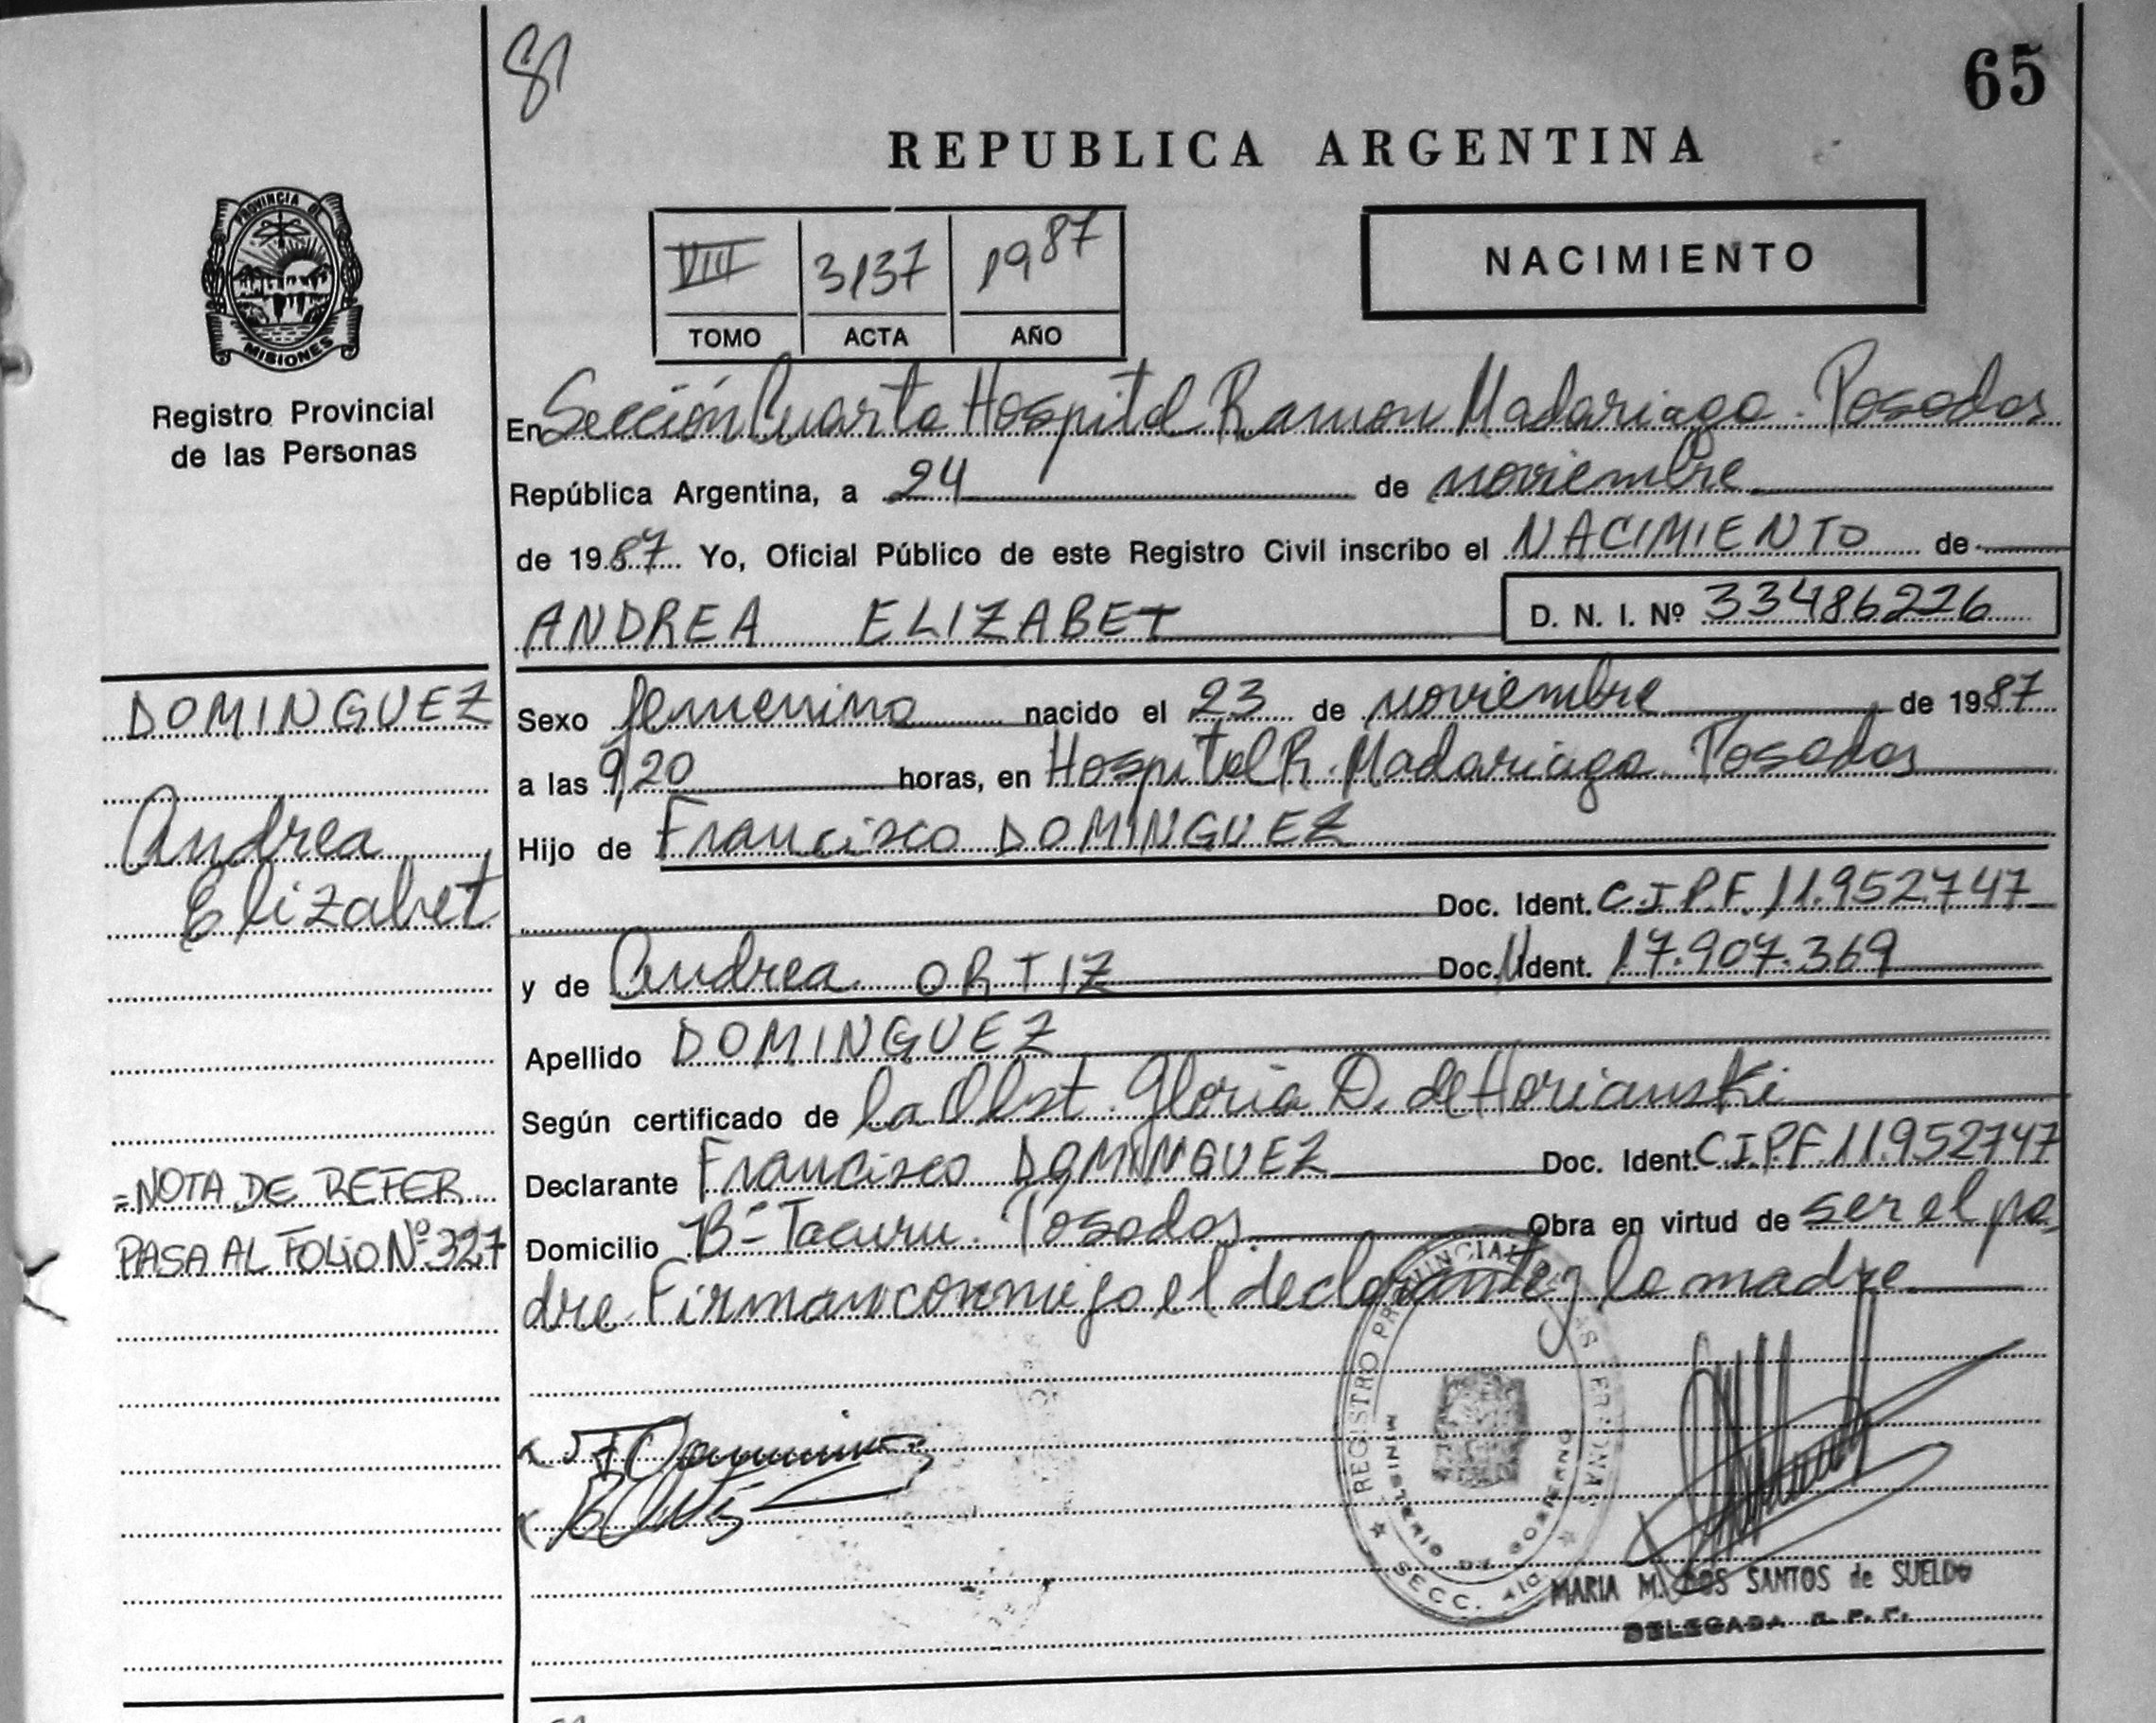 81
65
REPUBLICA ARGENTINA
PROVINCIA DE
MISIONES
Registro Provincial
de las Personas
VIII 3137 1987
TOMO ACTA AÑO
NACIMIENTO
En Sección Cuarta Hospital Ramon Madariaga. Posadas
República Argentina, a 24 de noviembre
de 1987 Yo, Oficial Público de este Registro Civil inscribo el NACIMIENTO de
ANDREA ELIZABET D. N. I. Nº 33486226
DOMINGUEZ
Andrea
Elizabet
Sexo femenino nacido el 23 de noviembre de 1987
a las 9,20 horas, en Hospital R. Madariaga. Posadas
Hijo de Francisco DOMINGUEZ
Doc. Ident. C.I.P.F. 11.952.747
y de Andrea ORTIZ Doc. Ident. 17.907.369
Apellido DOMINGUEZ
Según certificado de la Obst. Gloria D. de Horianski
Declarante Francisco DOMINGUEZ Doc. Ident. C.I.P.F. 11.952747
Domicilio Bº Tacuru. Posadas. Obra en virtud de ser el pa
dre. Firman conmigo el declarante y la madre
=NOTA DE REFER.
PASA AL FOLIO Nº 327
REGISTRO PROVINCIAL DE LAS PERSONAS
MINISTERIO DE GOBIERNO
SECC. 4ta
MARIA M. DOS SANTOS de SUELDO
DELEGADA R. P. P.